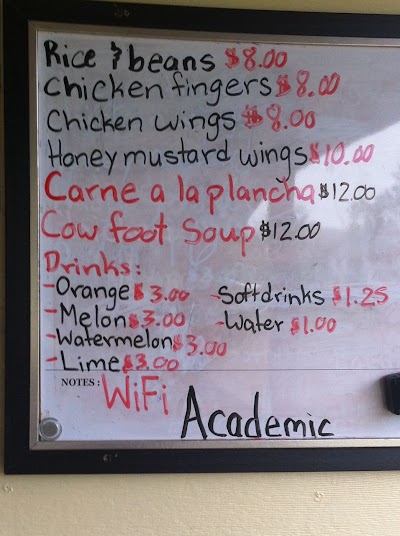 Rice & beans $8.00
Chicken fingers $8.00
Chicken wings $8.00
Honey mustard wings $10.00
Carne a la plancha $12.00
Cow foot Soup $12.00
Drinks:
-Orange $3.00 -Softdrinks $1.25
-Melon $3.00 -Water $1.00
-Watermelon $3.00
-Lime $3.00
NOTES: WiFi
Academic